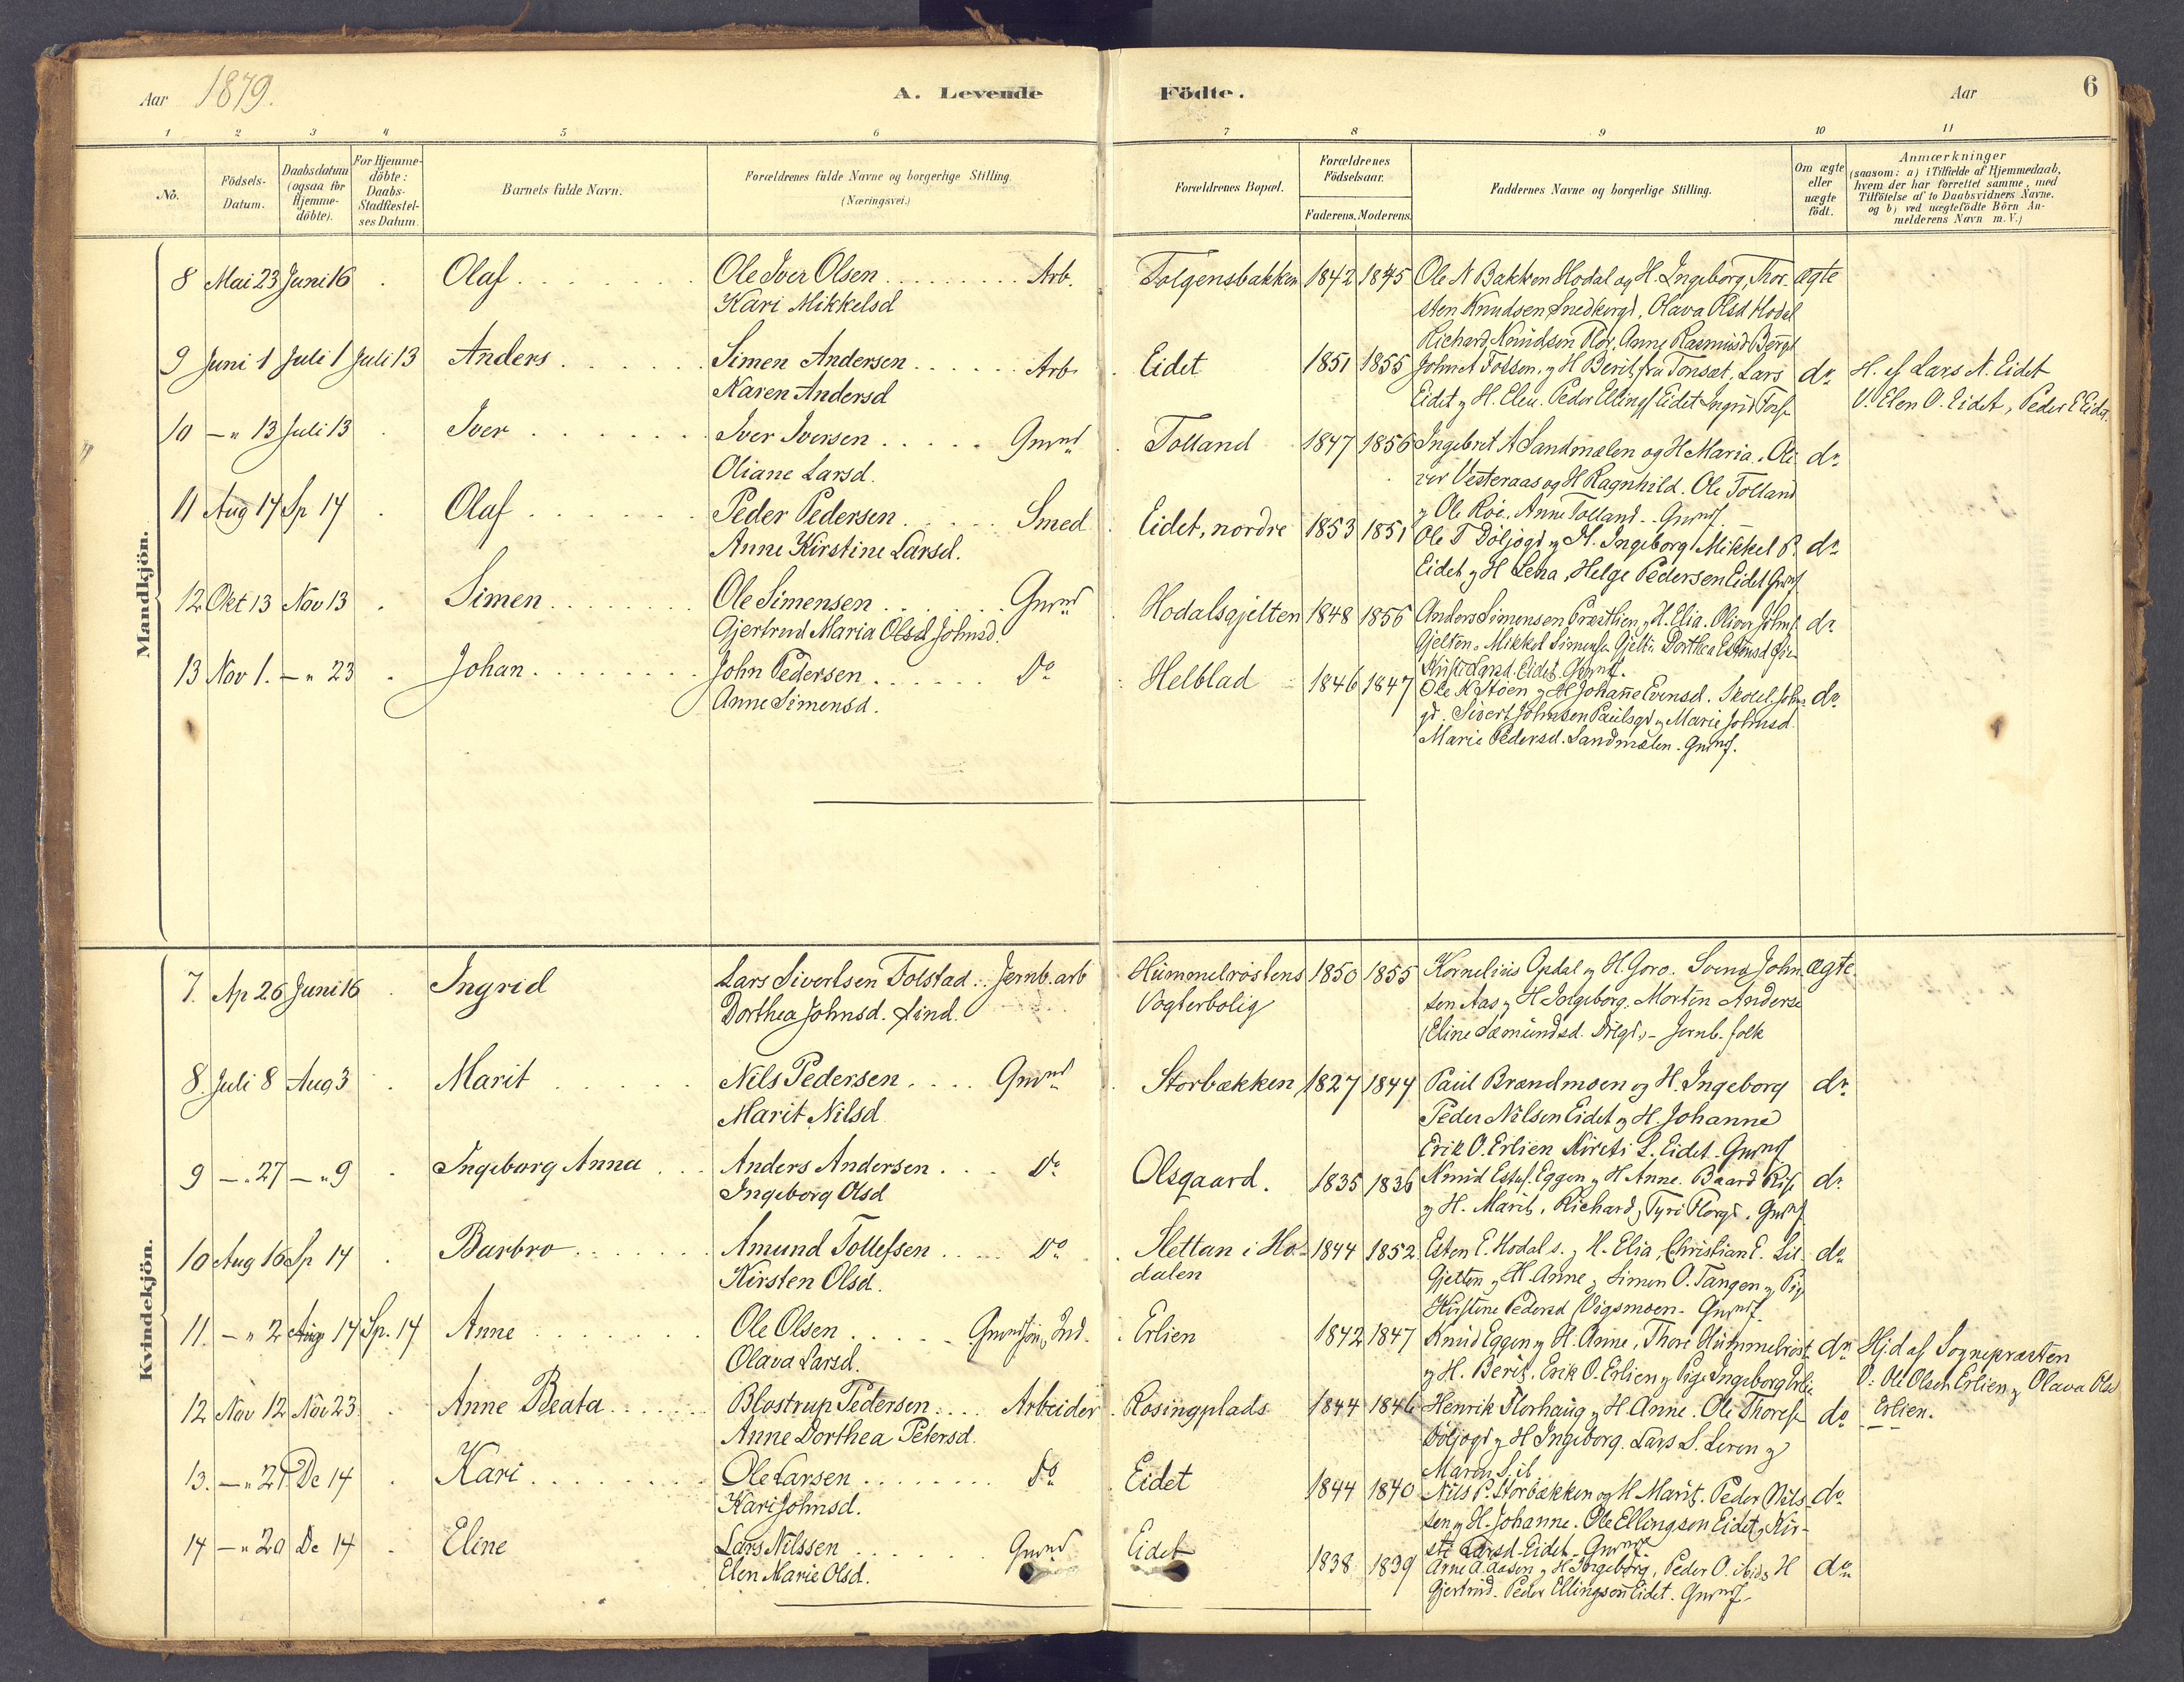 Aar 1879.
A. Levende Födte.
Aar
6
1 2 3 4 5 6 7 8 9 10 11
No.
Födsels-Datum.
Daabsdatum (ogsaa for Hjemme-döbte).
For Hjemme-döbte: Daabs-Stadfæstel-ses Datum.
Barnets fulde Navn.
Forældrenes fulde Navne og borgerlige Stilling.
(Næringsvei.)
Forældrenes Bopæl.
Forældrenes Födselsaar.
Faderens. Moderens.
Faddernes Navne og borgerlige Stilling.
Om ægte eller uægte födt.
Anmærkninger
(saasom: a) i Tilfælde af Hjemmedaab,
hvem der har forrettet samme, med
Tilföielse af to Daabsvidners Navne.
og b) ved uægtefödte Börn An-
melderens Navn m.V.)
Mandkjön.
8 Mai 23 Juni 16 Olaf Ole Iver Olsen Arb. Tolgensbakken 1842 1845 Ole N Bakken Hodal og H. Ingeborg, Thor- ægte
Kari Mikkelsd sten Knudsen Snedkergd, Olava Olsd Hodal
Richard Knudsen Anne Rasmusd
9 Juni 1 Juli 1 Juli 13 Anders Simen Andersen Arb Eidet 1851 1855 John A Tolsen, og H Berit, fra Tønsæt, Lars do H. af Lars N. Eidet
Karen Andersd Eidet og H. Elen. Peder Ellingsf Eidet Ingrid V: Elen O. Eidet, Peder E Eidet.
10 —" 13 Juli 13 Iver Iver Iversen Gmnd Tolland 1847 1856 Ingebret A Sandmælen og H Maria. Oli- do
Oliane Larsd. ver Vesteraas og H Ragnhild. Ole Tolland
og Ole Røe. Anne Tolland - Gmnf.
11 Aug 17 Sp 14 Olaf Peder Pedersen Smed Eidet, nordre 1853 1851 Ole T Døljogd og H. Ingeborg. Mikkel P. do
Anne Kirstine Larsd. Eidet og H Lena, Helge Pedersen Eidet Gmnf
12 Okt 13 Nov 13 Simen Ole Simensen Gmnd Hodalsgjelten 1848 1856 Anders Simensen og H. Elia. Oliver Johnsf. do
Gjertrud Maria Olsd Johnsd. Gjelten. Mikkel Simensen Dorthea
Larsd. Eidet. Gmnf.
13 Nov 1. —" 23 Johan John Pedersen Do Helblad 1846 1847 Ole K Støen og H Johanne Evensd. do
Anne Simensd. gd. Sivert Johnsen Paulsgd og Marie Johnsd.
Marie Pedersd. Sandmælen. Gmnf.
Kvindekjön.
7. Ap 26 Juni 16 Ingrid Lars Sivertsen Tolstad Jernb. arb Hummelrøstens 1850 1855 Kornelius Opdal og H. Goro. Svend John- ægte
Dorthea Johnsd. Lind. Vogterbolig sen Aas og H Ingeborg. Morten Anderse
Eline Sæmundsd. - Jernb. folk
8. Juli 8 Aug 3 Marit Nils Pedersen Gmnd Storbækken 1827 1844 Paul Brændmoen og H. Ingeborg do
Marit Nilsd Peder Nilsen Eidet og H. Johanne
Erik O. Erlien Kirsti L. Eidet - Gmnf
9 —" 27 —" 9 Ingeborg Anna Anders Andersen Do Olsgaard. 1835 1836 Knud Estef. Eggen og H Anne. Baard do
Ingeborg Olsd og H. Marit, Richard, Gmnf
10 Aug 16 Sp 14 Barbro Amund Tollefsen Do Slettan i Ho- 1844 1852 Esten E. Hodal s. og H. Elia, Christian E. Lil- do
Kirsten Olsd. dalen Gjelten og H. Anne og Simen O. Tangen og Pig
Kirstine Pedersd Vigsmoen - Gmnf.
11. —" 2 Aug 17 Sp. 14 Anne Ole Olsen Ind. Erlien 1842 1847 Knud Eggen og H. Anne, Thore Hummelrøst do Hj.d af Sognepræsten
Olava Larsd. og H. Berit, Erik O. Erlien og Pige Ingeborg V: Ole Olsen Erlien og Olava Olsd
12 Nov 12 Nov 23 Anne Beata Blostrup Pedersen Arbeider Rosingplads 1844 1846 Henrik Florhaug og H. Anne. Ole do Erlien.
Anne Dorthea Petersd. Døljogd og H Ingeborg. Lars S. og
Maren S. ib
13. —" 21 De 14 Kari Ole Larsen Do Eidet 1844 1840 Nils P. Storbækken og H Marit. Peder Nils- do
Kari Johnsd. sen og H. Johanne. Ole Ellingsen Eidet og Kir-
sti Larsd. Eidet. Gmnf
14 —" 20 De 14 Eline Lars Nilssen Gmnd Eidet 1838 1839 Arne A. Aasen og H Ingeborg, Peder O. ibid og H do
Elen Marie Olsd. Gjertrud. Peder Ellingsøn Eidet. Gmnf.